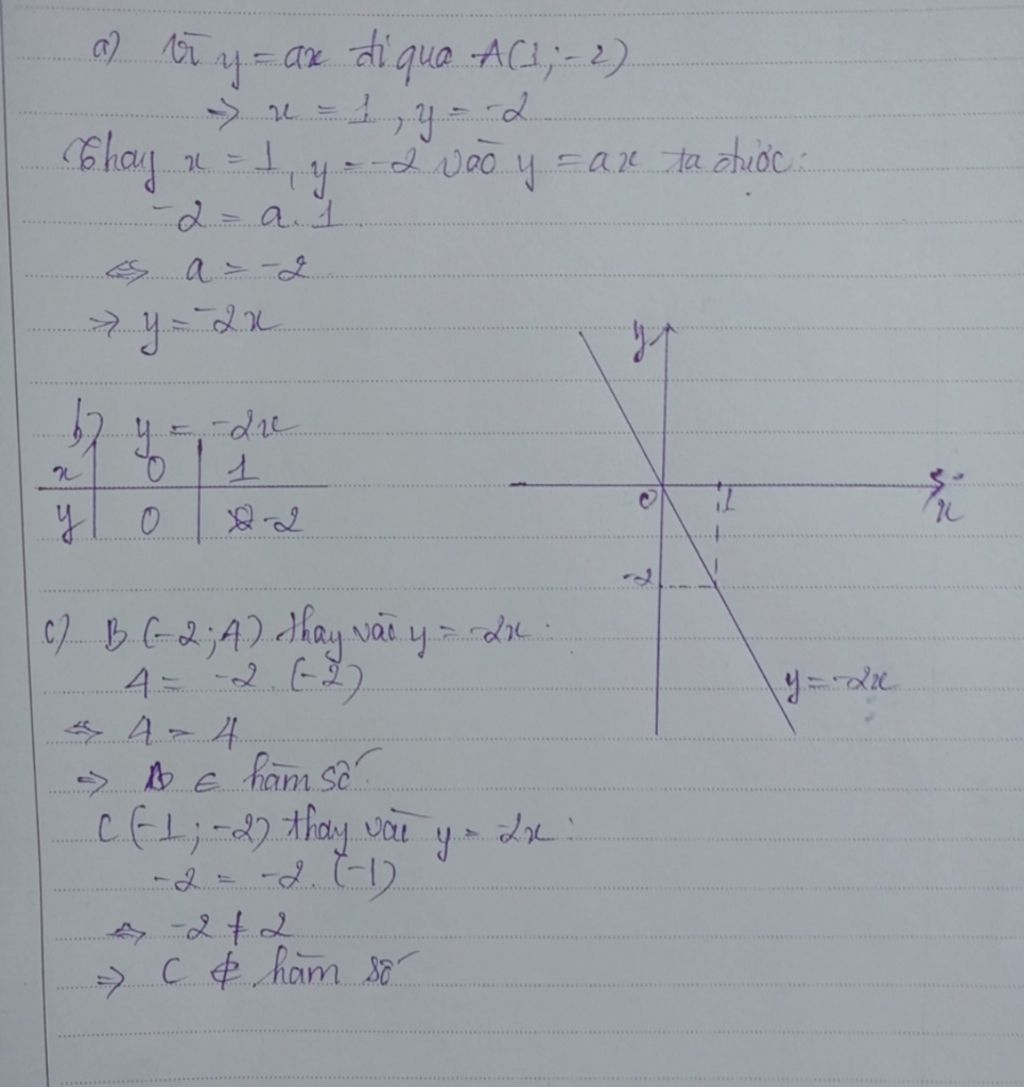 a) Vì y = ax đi qua A(1; -2)
⇒ x = 1, y = -2
Thay x = 1, y = -2 vào y = ax ta được:
-2 = a. 1
⇔ a = -2
⇒ y = -2x
b) y = -2x
x 0 1
y 0 -2
y
0 1
x
-2
y = -2x
c) B (-2; 4) thay vào y = -2x.
4 = -2. (-2)
⇔ 4 = 4
⇒ B ∈ hàm số
C (-1; -2) thay vào y = -2x:
-2 = -2. (-1)
⇔ -2 ≠ 2
⇒ C ∉ hàm số